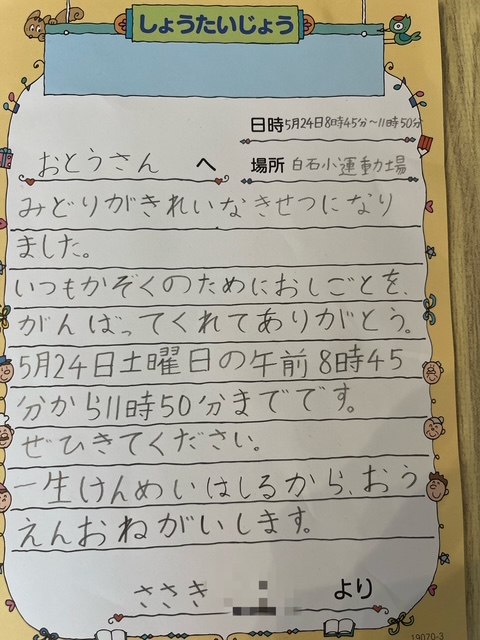 しょうたいじょう
日時5月24日8時45分～11時50分
おとうさん へ
場所 白石小運動場
みどりがきれいなきせつになり
ました。
いつもかぞくのためにおしごとを、
がんばってくれてありがとう。
5月24日土曜日の午前8時45
分から11時50分までです。
ぜひきてください。
一生けんめいはしるから、おう
えんおねがいします。
ささき より
19070-3